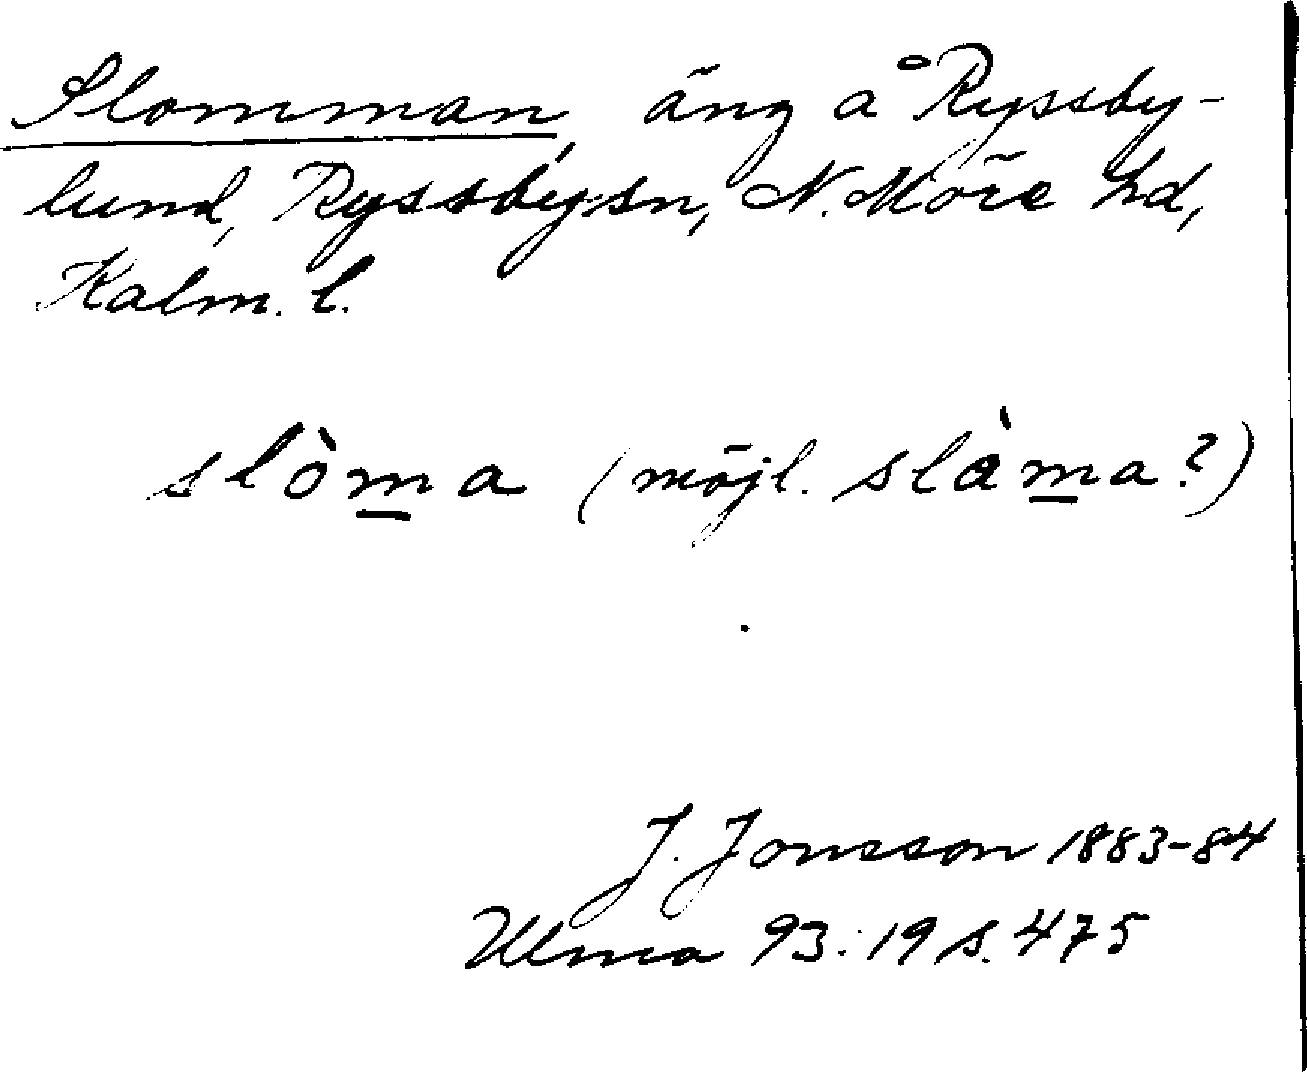 Slomman, äng å Ryssby-
lund, Ryssby sn, N. Möre hd,
Kalm. l.
slòma (möjl. slàma?)
J. Jonsson 1883-84
Ulma 93:19 s. 475